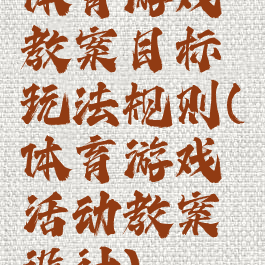 体育游戏
教案目标
玩法规则(
体育游戏
活动教案
设计)